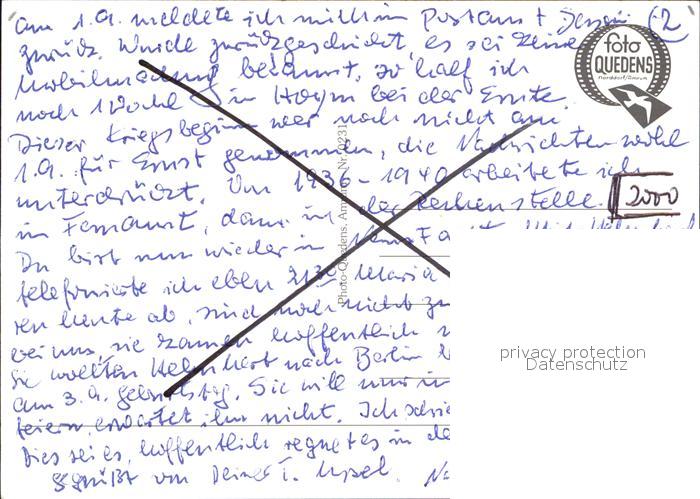 am 1.9. meldete ich mich im Postamt (2
zurück. Wurde zurückgeschickt, es sei keine
Mobilmachung bekannt, so half ich
noch 1 Woche in Hoym bei der Ernte.
Dieser Kriegsbeginn war noch nicht am
1.9. für Ernst genommen, die Nachrichten wohl
unterdrückt. Von 1936 - 1940 arbeitete ich
im Fernamt, dann in der Rechenstelle.
Du bist nun wieder in
telefonierte ich eben 21³⁰ Maria
ren heute ab, sind noch nicht zu
bei uns, sie kamen hoffentlich
Sie wollten nach Berlin
am 3.9. Geburtstag. Sie will nur in
feiern, erwartet ihn nicht. Ich
Dies sei es, hoffentlich regnet es in
Gegrüßt von Deiner T. Ursel.
foto
QUEDENS
Norddorf/Amrum
2000
Photo-Quedens, Amrum, Nr. 10231
privacy protection
Datenschutz